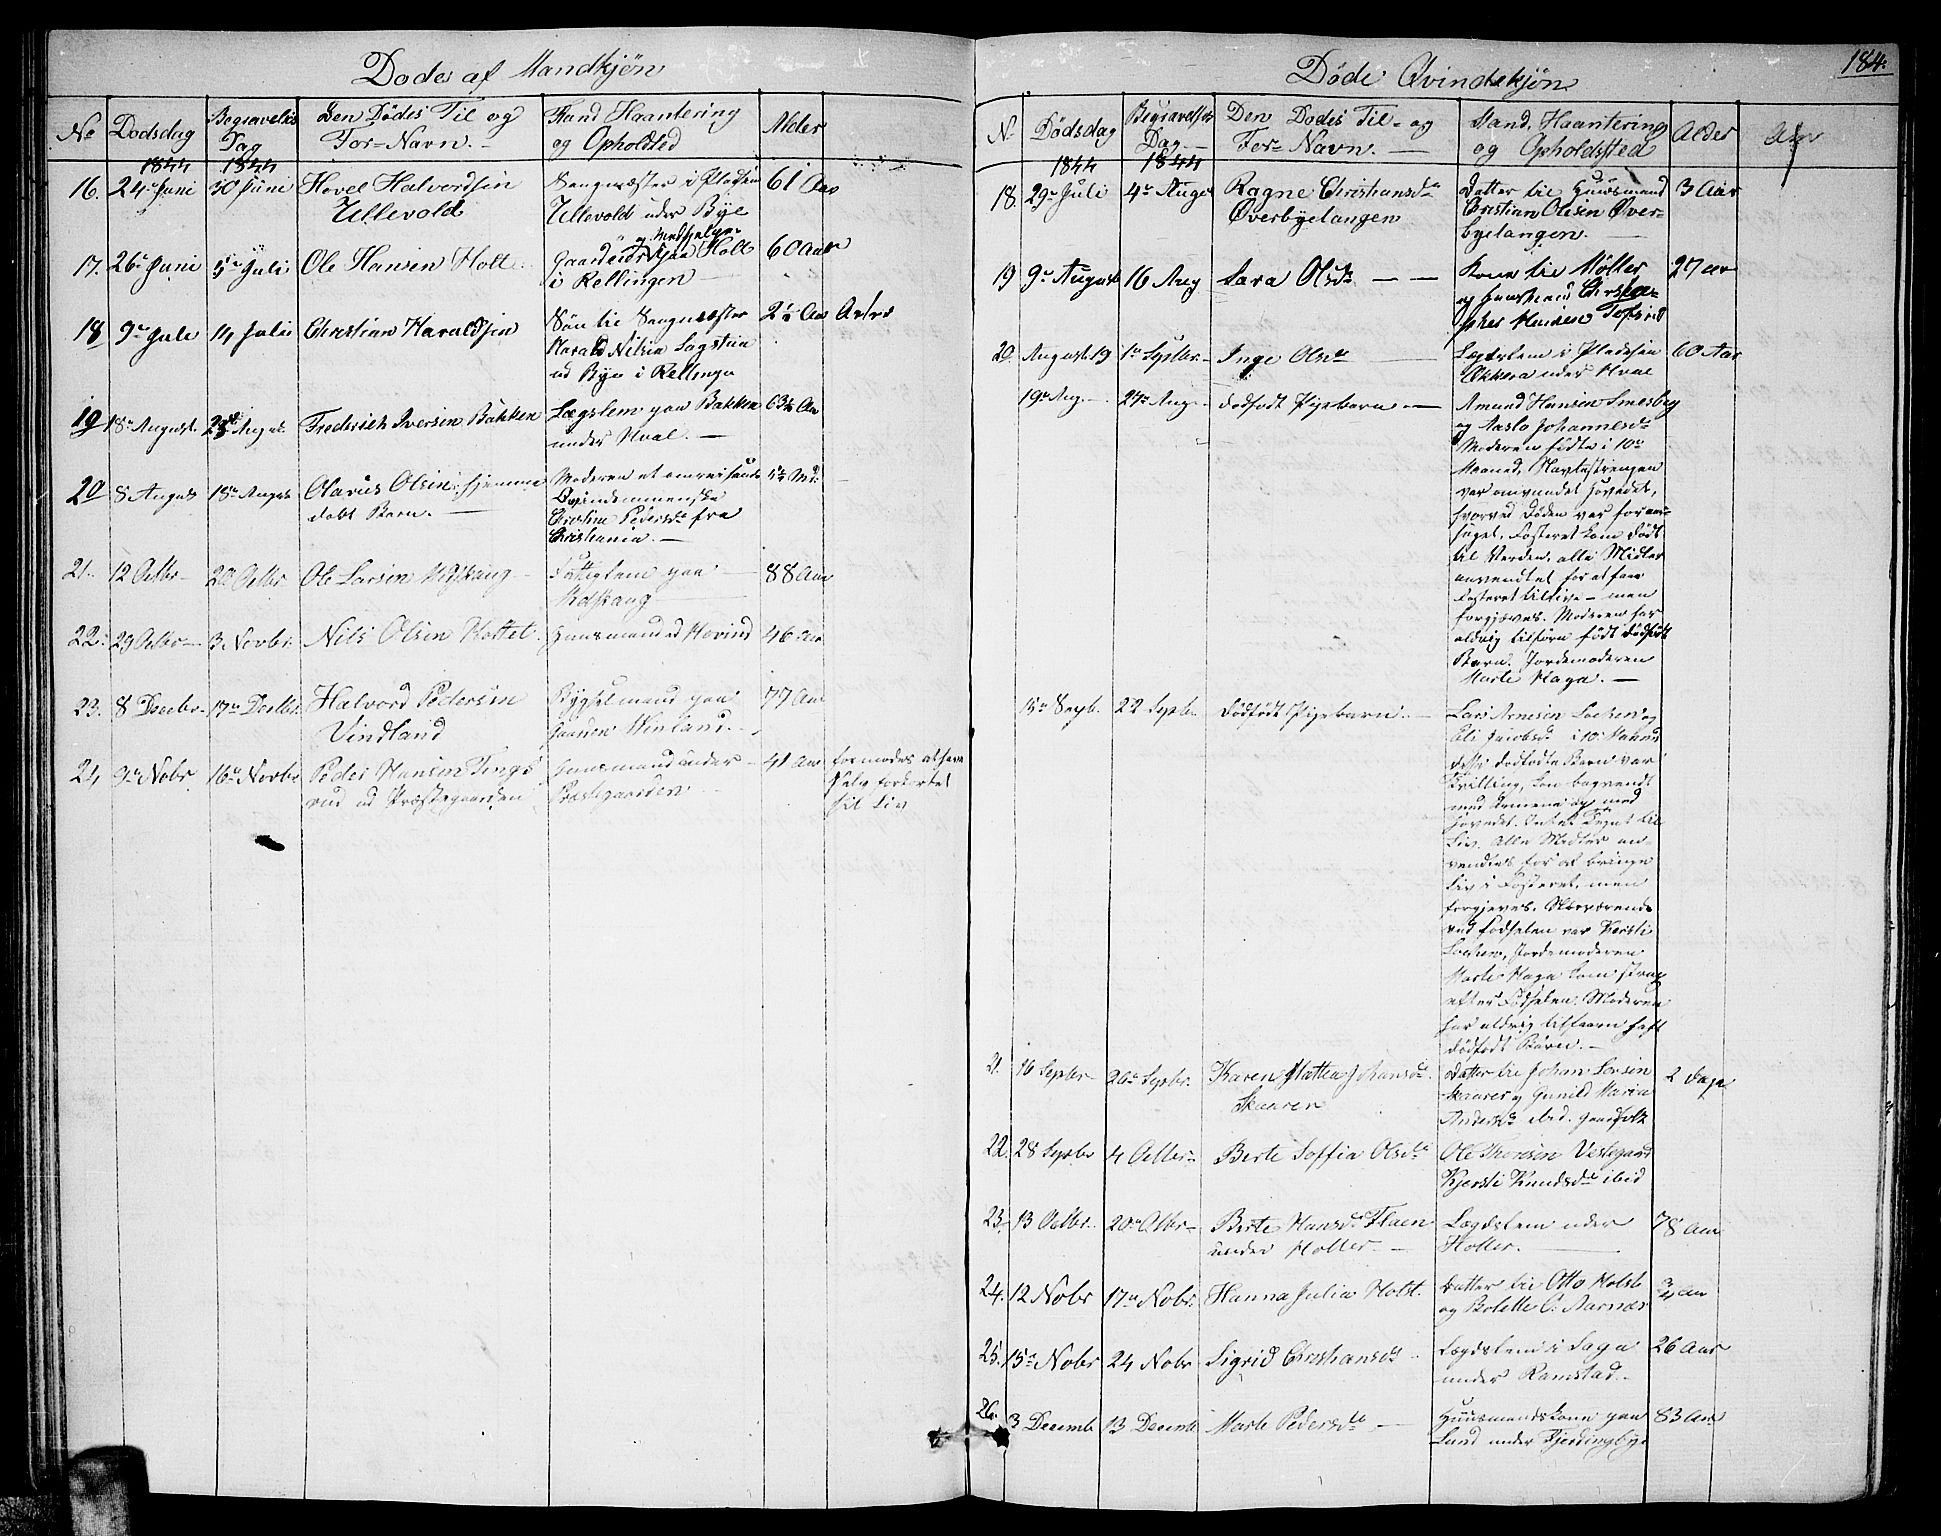 Dødes af Mandkjøn
No Dødsdag Begravelses Dag Den Dødes Til og For=Navn. Stand Haantering og Opholdsted Alder
1844 1844
16. 24de Juni 30 Juni Hovel Halvordsen
Ullevold
i Pladsen
Ullevold under Bye
61 Aar
17. 26de Juni 5te Juli Ole Hansen Holt
og Medhjelper
Gaardeier paa Holt
i Rellingen
60 Aar
18 9de Juli 14 Juli Christian Haraldsen
Søn til
Harald Nilsen
ud Bye i Rellingen
2½ Aar
19 18de August 25de August Frederich Iversen Bakken
Lægslem paa Bakken
under Hval.
63½ Aar
20 8 August 18de August Olavus Olsen, hjemme
døbt Barn.
Moderen et omreisende
Qvindemenneske
Christine Pedersdr fra
Christiania.
21. 12 Octbr 20 Octbr Ole Larsen
Fattiglem paa
88 Aar
22. 29 Octbr 3 Novbr. Nils Olsen
Huusmand ud Hovind
46 Aar
23. 8 Decbr. 17de Decbr. Halvord Pedersen
Vindland
Bygselmand paa
Gaarden Winland.
77 Aar
24 9de Nobr 16de Novbr Peder Hansen Tings
rud ud Præstegaarden
Huusmand under
Præstegaarden
41 Aar
formodes at have
selv forkortet
sit Liv
184.
Døde Qvindekjøn
No Dødsdag Begravelses Dag. Den Dødes Til= og For=Navn. Stand, Haantering og Opholdsted Alder
1844 1844
18. 29de Juli 4de August Ragne Christiansdr
Øverbyelangen
Datter til Huusmand
Christian Olsen Øver-
byelangen.
3 Aar
19 9de August 16 Aug Sara Olsdr
Kone til Møller
og Huusmand
27 Aar
20. August 19 1de Septbr. Inge Olsdr
Lægslem i Pladsen
under Hval
60 Aar
19de Aug. 27de Aug dødfødt Pigebarn
Amund Hansen
og Aaslo Johannesdr
Moderen fødte i 10de
Maaned, Navlestrengen
var omvundet Hovedet,
hvorved Døden var foraar-
saget. Fosteret kom dødt
til Verden, alle Midler
anvendtet for at faae
Fosteret tillive - men
forgjæves. Moderen har
aldrig tilforn født dødfødt
Barn. Jordemoderen
Marte Haga.
15de Septb. 22 Septbr. dødfødt Pigebarn
Lars Arnesen Lochen og
Eli Jacobsdr i 10. Maaned
dette dødfødte Barn var
Tvilling, kom bagvendt
med Armene op med
Hovedet. Intet Tegn til
Liv. Alle Midler an-
vendtes for at bringe
Liv i Fosteret, men
forgjeves. Nærværende
ved Fødselen var Kersti
Lochen, Jordemoderen
Marte Haga kom strax
efter Fødselen. Moderen
har aldrig tilforn haft
dødfødt Børn.
21. 16 Septbr 20de Septbr. Karen Mathea Johansdr
Skaaren
Datter til Johan Larsen
Skaaren og Gunild Maria
Andersdr ibid. Gaardfolk
2 Dage
22. 28 Septbr 4 Octbr Berte Soffia Olsdr
Ole Thoresen Vestegaard
Kjersti Knudsdr ibid
23. 13 Octbr. 20de Octbr Berte Hansdr Flaen
under Holter
Lægdslem under
Holter.
78 Aar
24. 12 Nobr 17de Nobr. Hanna Julia Holst.
Datter til Otto Holst
og Bolette C. Aarnæs
¾ Aar
25. 15de Nobr 24 Nobr Sigrid Christiansdr
Lægdslem i Saga
under Ramstad.
26 Aar
26. 3 Decemb 13 Decemb Marte Pedersdr
Huusmandskone paa
Lund under Fjerdingbye
83 Aar